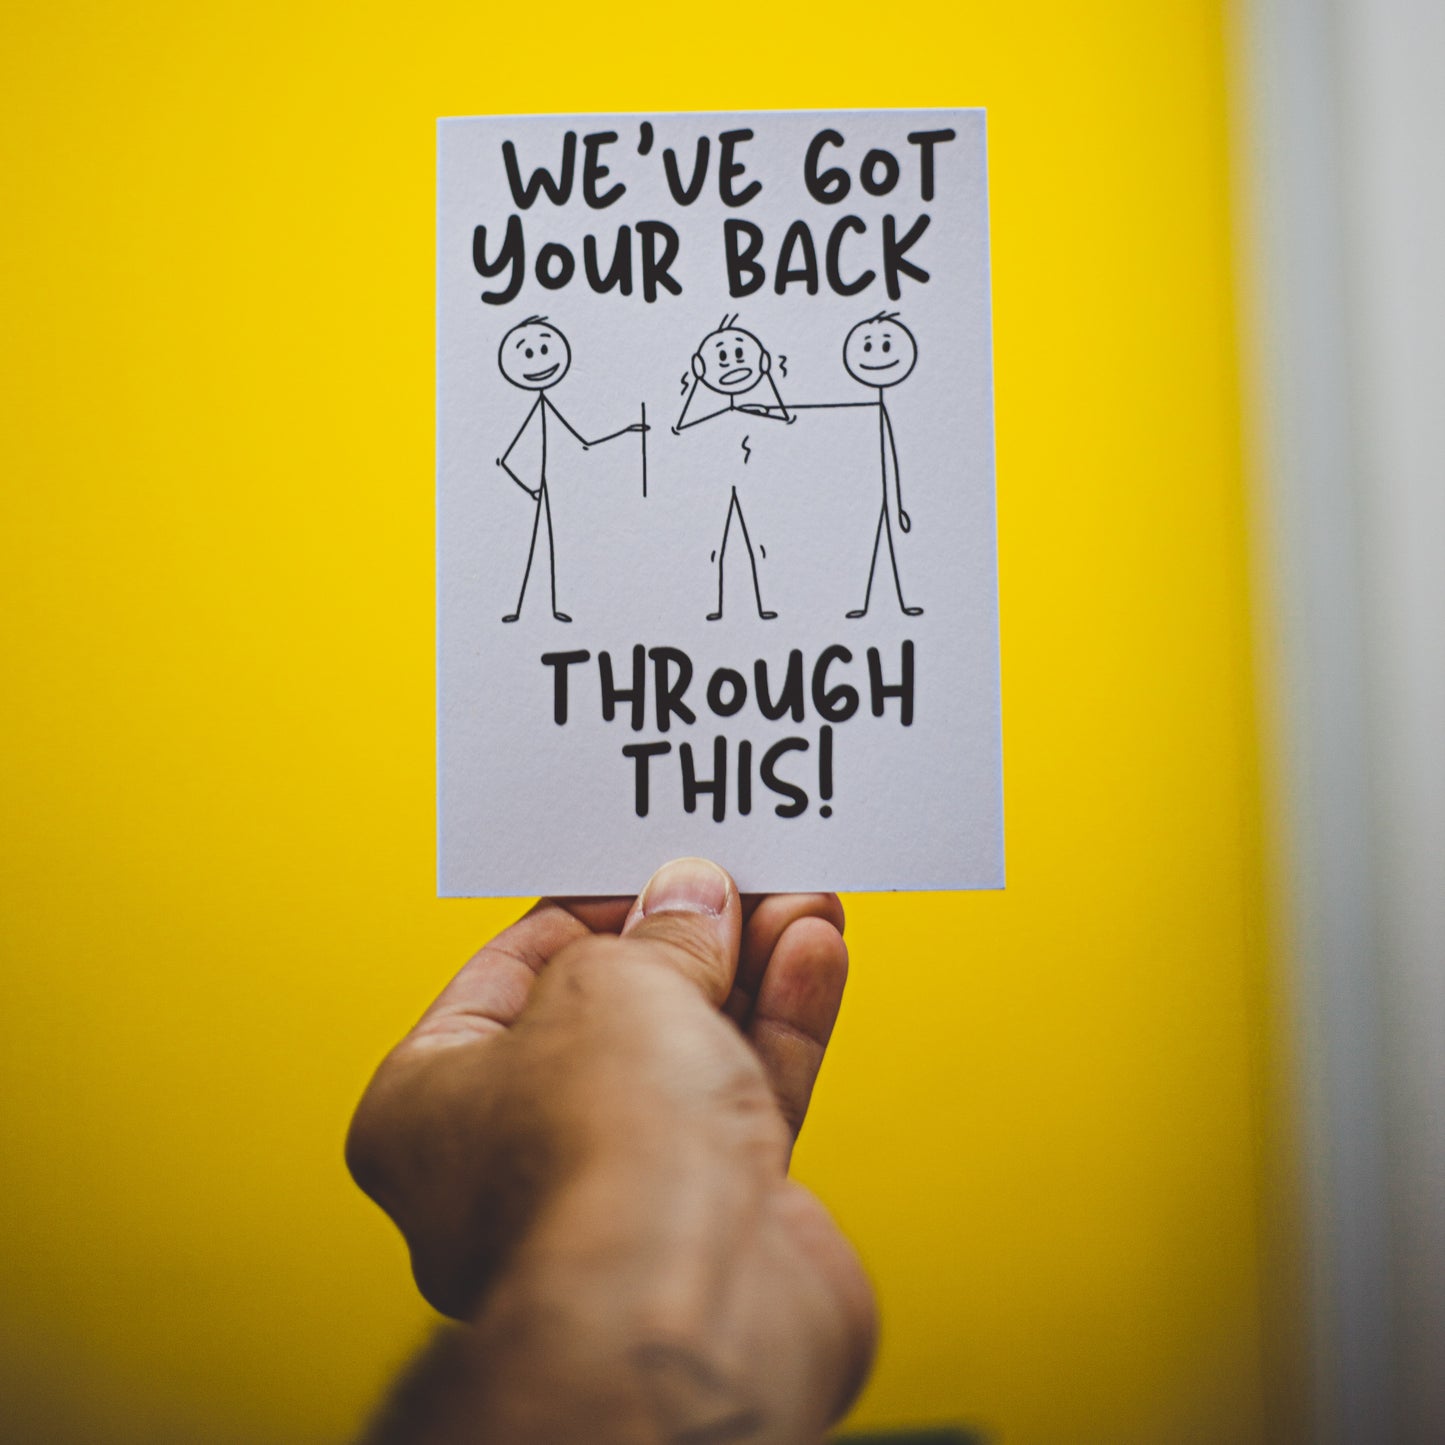 WE'VE GOT
YOUR BACK
THROUGH
THIS!